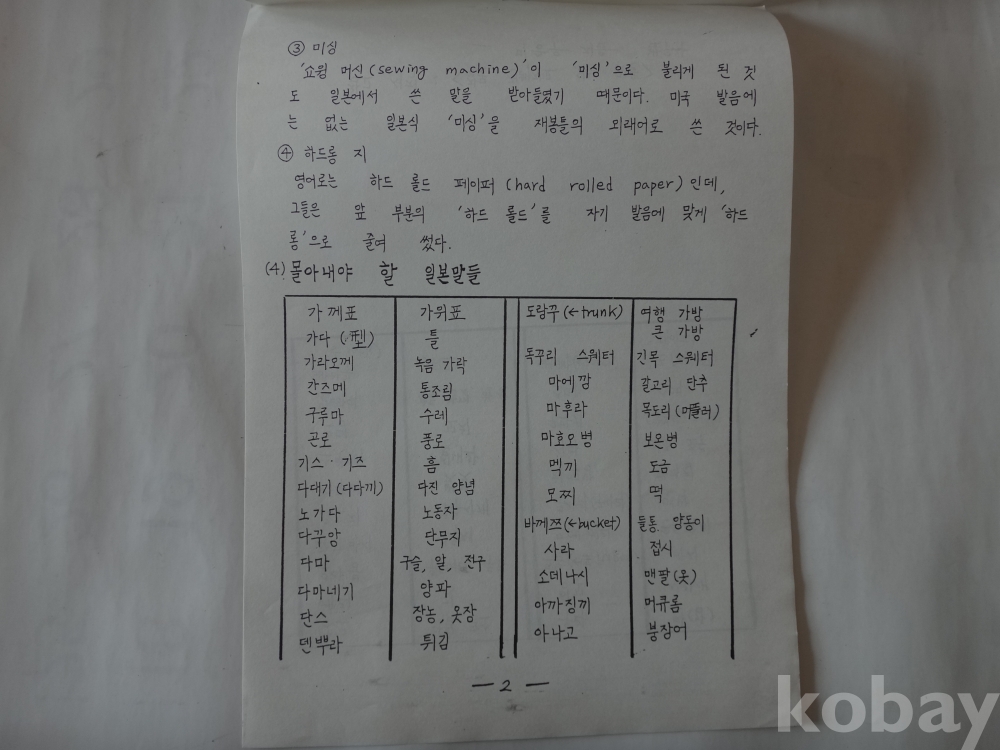 ③ 미싱
'쇼윙 머신(sewing machine)'이 '미싱'으로 불리게 된 것
도 일본에서 쓴 말을 받아들였기 때문이다. 미국 발음에
는 없는 일본식 '미싱'을 재봉틀의 외래어로 쓴 것이다.
④ 하드롱 지
영어로는 하드 롤드 페이퍼(hard rolled paper)인데,
그들은 앞 부분의 '하드 롤드'를 자기 발음에 맞게 '하드
롱'으로 줄여 썼다.
(4) 몰아내야 할 일본말들
가께표 가위표 도랑꾸(←trunk) 여행 가방
큰 가방
가다(型) 틀
가라오께 녹음 가락 독꾸리 스웨터 긴목 스웨터
간즈메 통조림 마에깡 갈고리 단추
구루마 수레 마후라 목도리(머플러)
곤로 풍로 마호오병 보온병
기스·기즈 흠 멕끼 도금
다대기(다다끼) 다진 양념 모찌 떡
노가다 노동자 바께쯔(←bucket) 들통 양동이
다꾸앙 단무지 사라 접시
다마 구슬, 알, 전구 소데나시 맨팔(옷)
다마네기 양파 아까징끼 머큐롬
단스 장농, 옷장 아나고 붕장어
덴뿌라 튀김
— 2 —
kobay